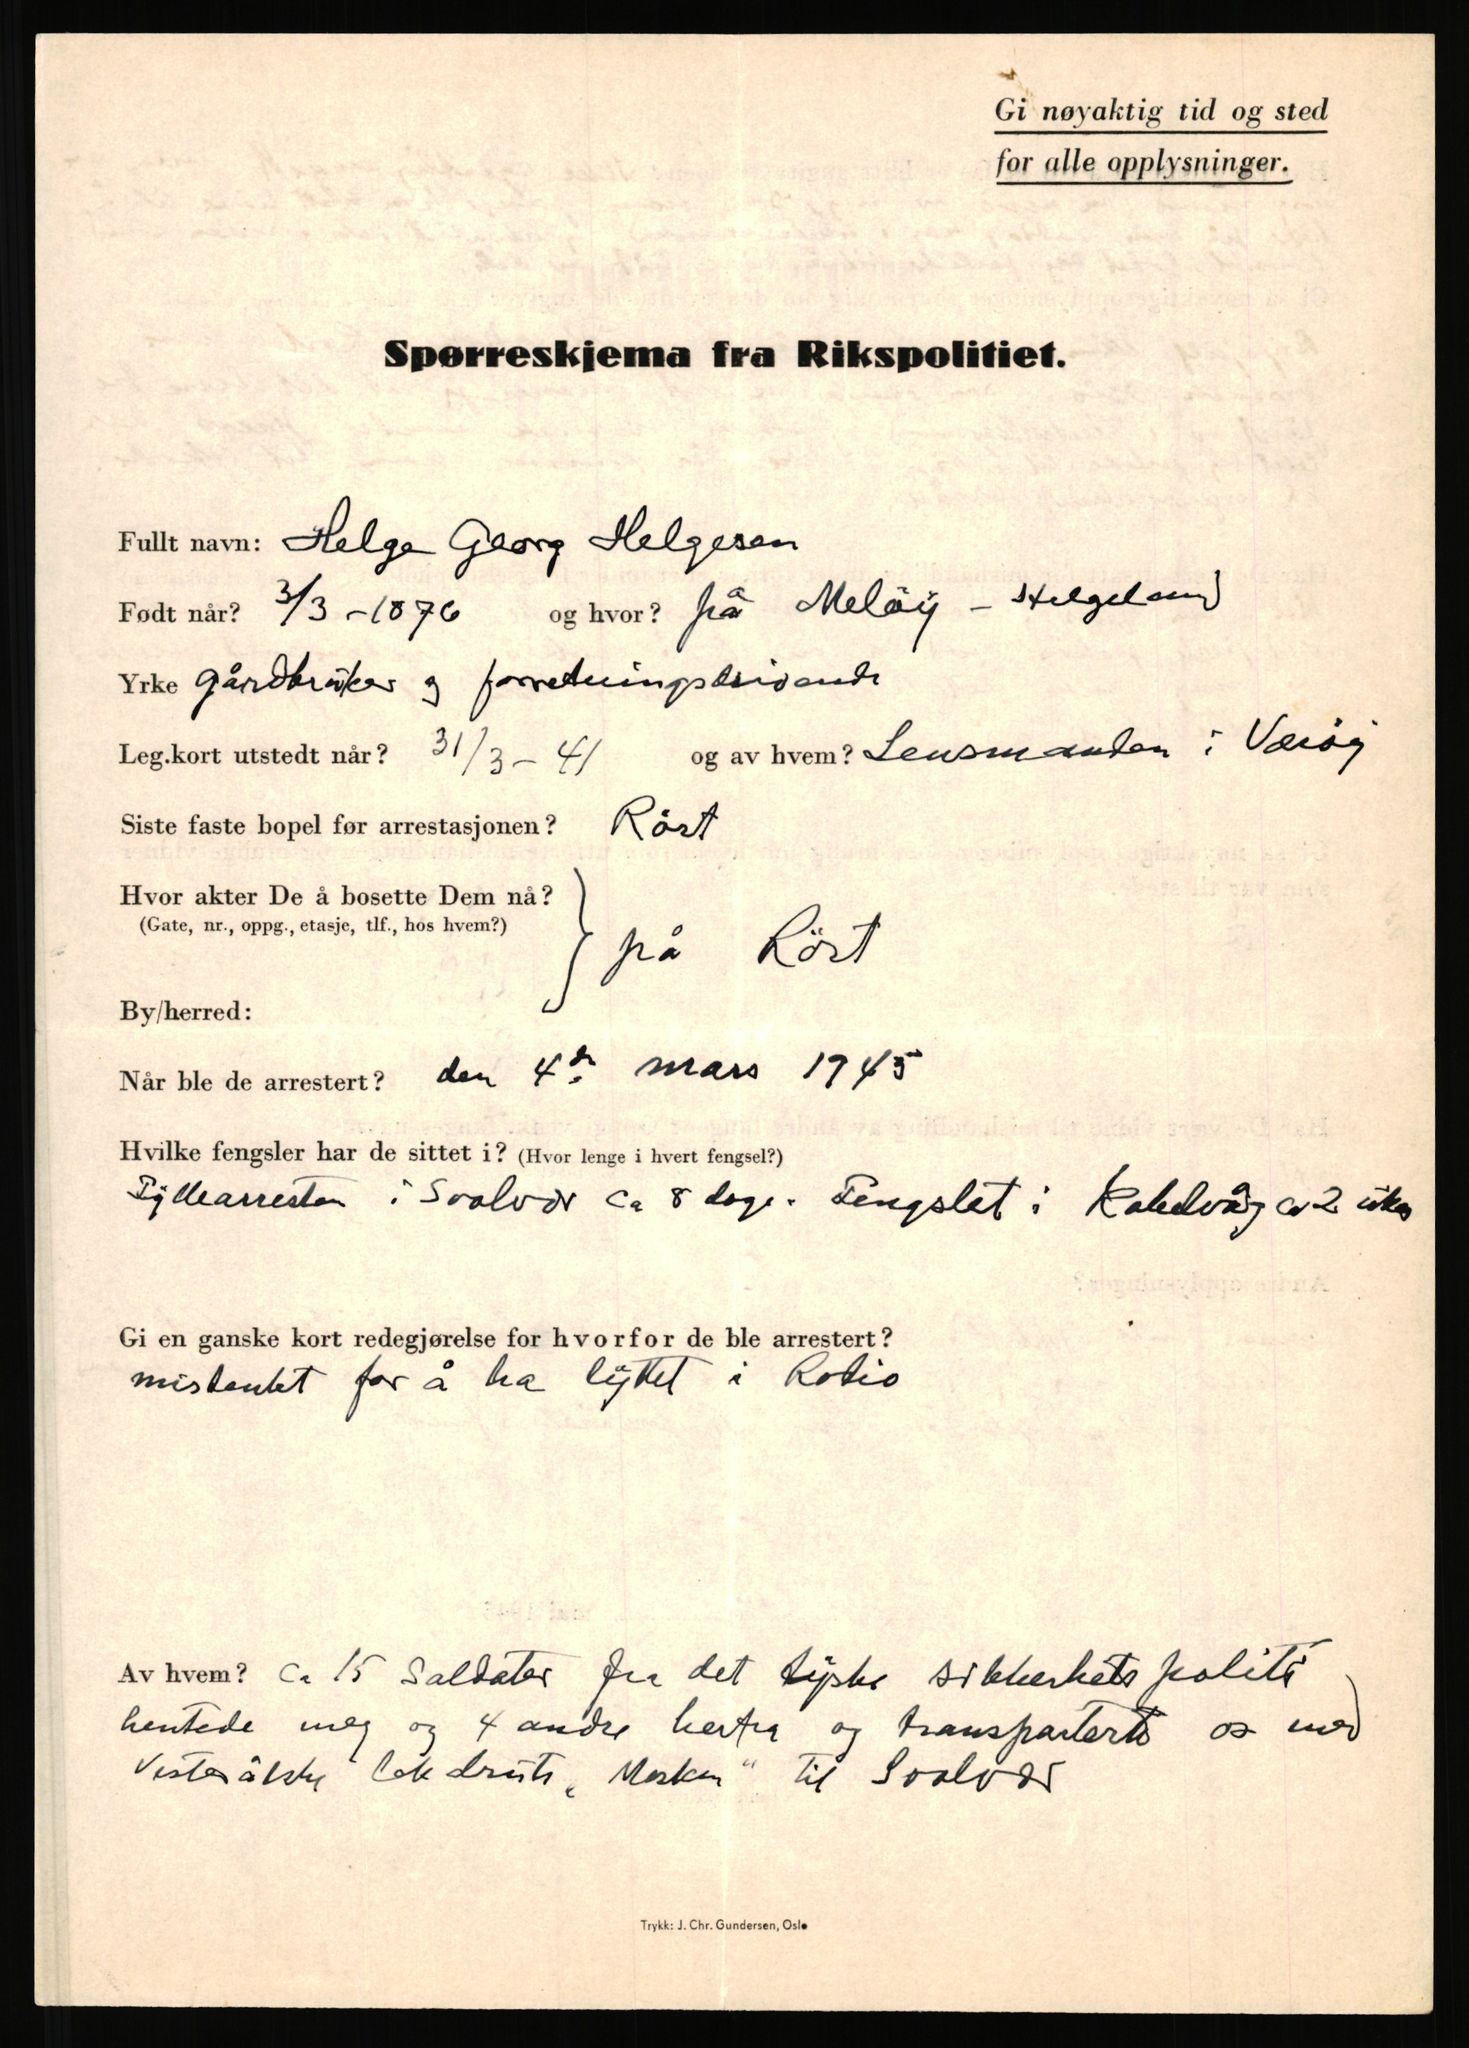 Gi nøyaktig tid og sted
for alle opplysninger.
Spørreskjema fra Rikspolitiet.
Fullt navn: Helge Georg Helgesen
Født når? 3/3 - 1876 og hvor? på Meløy - Helgeland
Yrke gårdbruker og forretningsdrivende
Leg.kort utstedt når? 31/3 - 41 og av hvem? Lensmanden i Værøy
Siste faste bopel før arrestasjonen? Röst
Hvor akter De å bosette Dem nå?
(Gate, nr., oppg., etasje, tlf., hos hvem?)
på Röst
By/herred:
Når ble de arrestert? den 4de mars 1945
Hvilke fengsler har de sittet i? (Hvor lenge i hvert fengsel?)
i Svolvær ca 8 dage. Fengslet i Kabelvåg ca 2 uker
Gi en ganske kort redegjørelse for hvorfor de ble arrestert?
mistenkt for å ha lyttet i Radio
Av hvem? Ca 15 Soldater fra det tyske sikkerhetspoliti
hentede meg og 4 andre herfra og transporterte os med
Vesterålske lokalrute „Mosken" til Svolvær
Trykk: J. Chr. Gundersen, Oslo